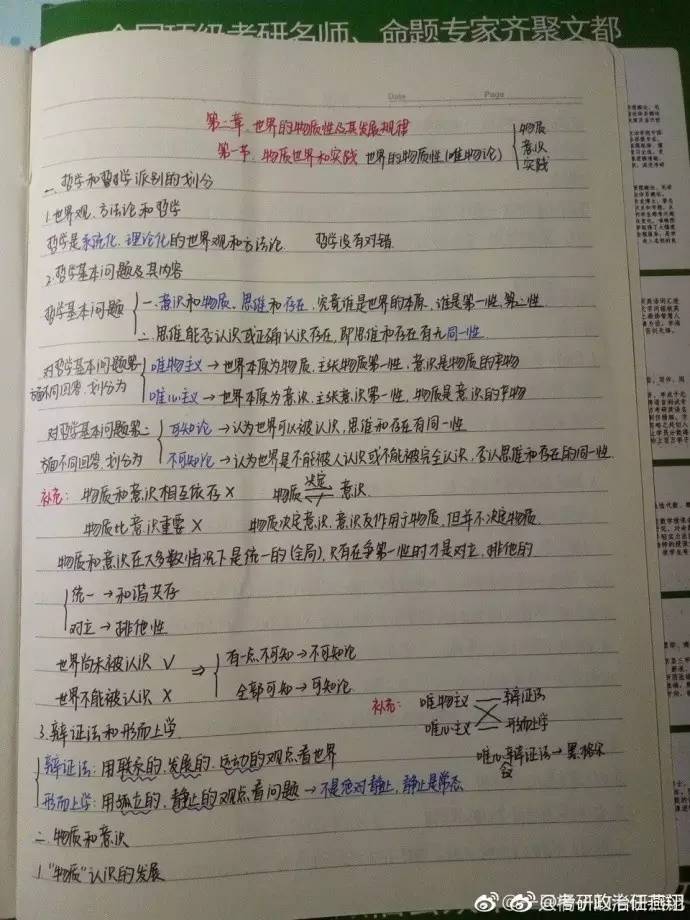 全国顶级考研名师、命题专家齐聚文都
Date Page
第二章、世界的物质性及其发展规律
第一节、物质世界和实践 世界的物质性(唯物论) 物质 意识 实践
一、哲学和哲学派别的划分
1.世界观、方法论和哲学
哲学是系统化、理论化的世界观和方法论 哲学没有对错.
2.哲学基本问题及其内容
哲学基本问题
一.意识和物质、思维和存在,究竟谁是世界的本原,谁是第一性、第二性
二.思维能否认识或正确认识存在,即思维和存在有无同一性.
对哲学基本问题第一方面不同回答,划分为
唯物主义→世界本原为物质,主张物质第一性,意识是物质的产物
唯心主义→世界本原为意识,主张意识第一性,物质是意识的产物
对哲学基本问题第二方面不同回答,划分为
可知论→认为世界可以被认识,思维和存在有同一性
不可知论→认为世界是不能被人认识或不能被完全认识,否认思维和存在的同一性.
补充: 物质和意识相互依存× 物质 决定 意识.
物质比意识重要× 物质决定意识,意识反作用于物质,但并不决定物质.
物质和意识在大多数情况下是统一的(全局),只有在争第一性时才是对立、排他的
统一→和谐共存
对立→排他性
世界尚未被认识 √ ⇒ 有一点不可知→不可知论
世界不能被认识 × 全部可知→可知论
补充: 唯物主义 辩证法
唯心主义 形而上学
唯心辩证法→黑格尔
3.辩证法和形而上学
辩证法:用联系的、发展的、运动的观点看世界
形而上学:用孤立的、静止的观点看问题→不是绝对静止,静止是常态
二.物质和意识
1."物质"认识的发展
@考研政治任燕翔